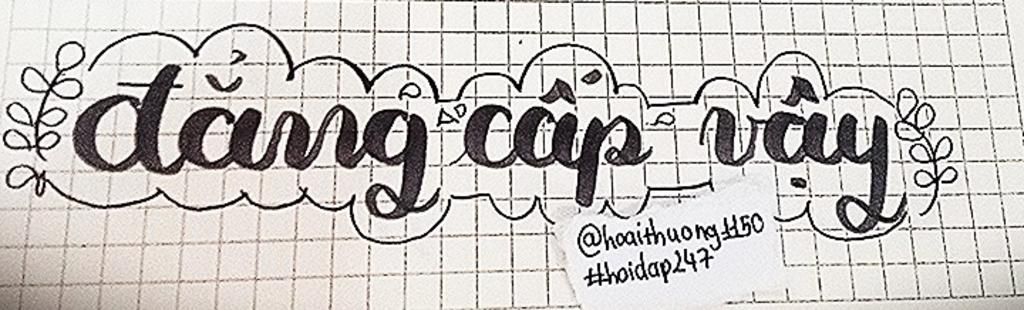 đẳng cấp vậy
@hoaithuong1150
#hoidap247